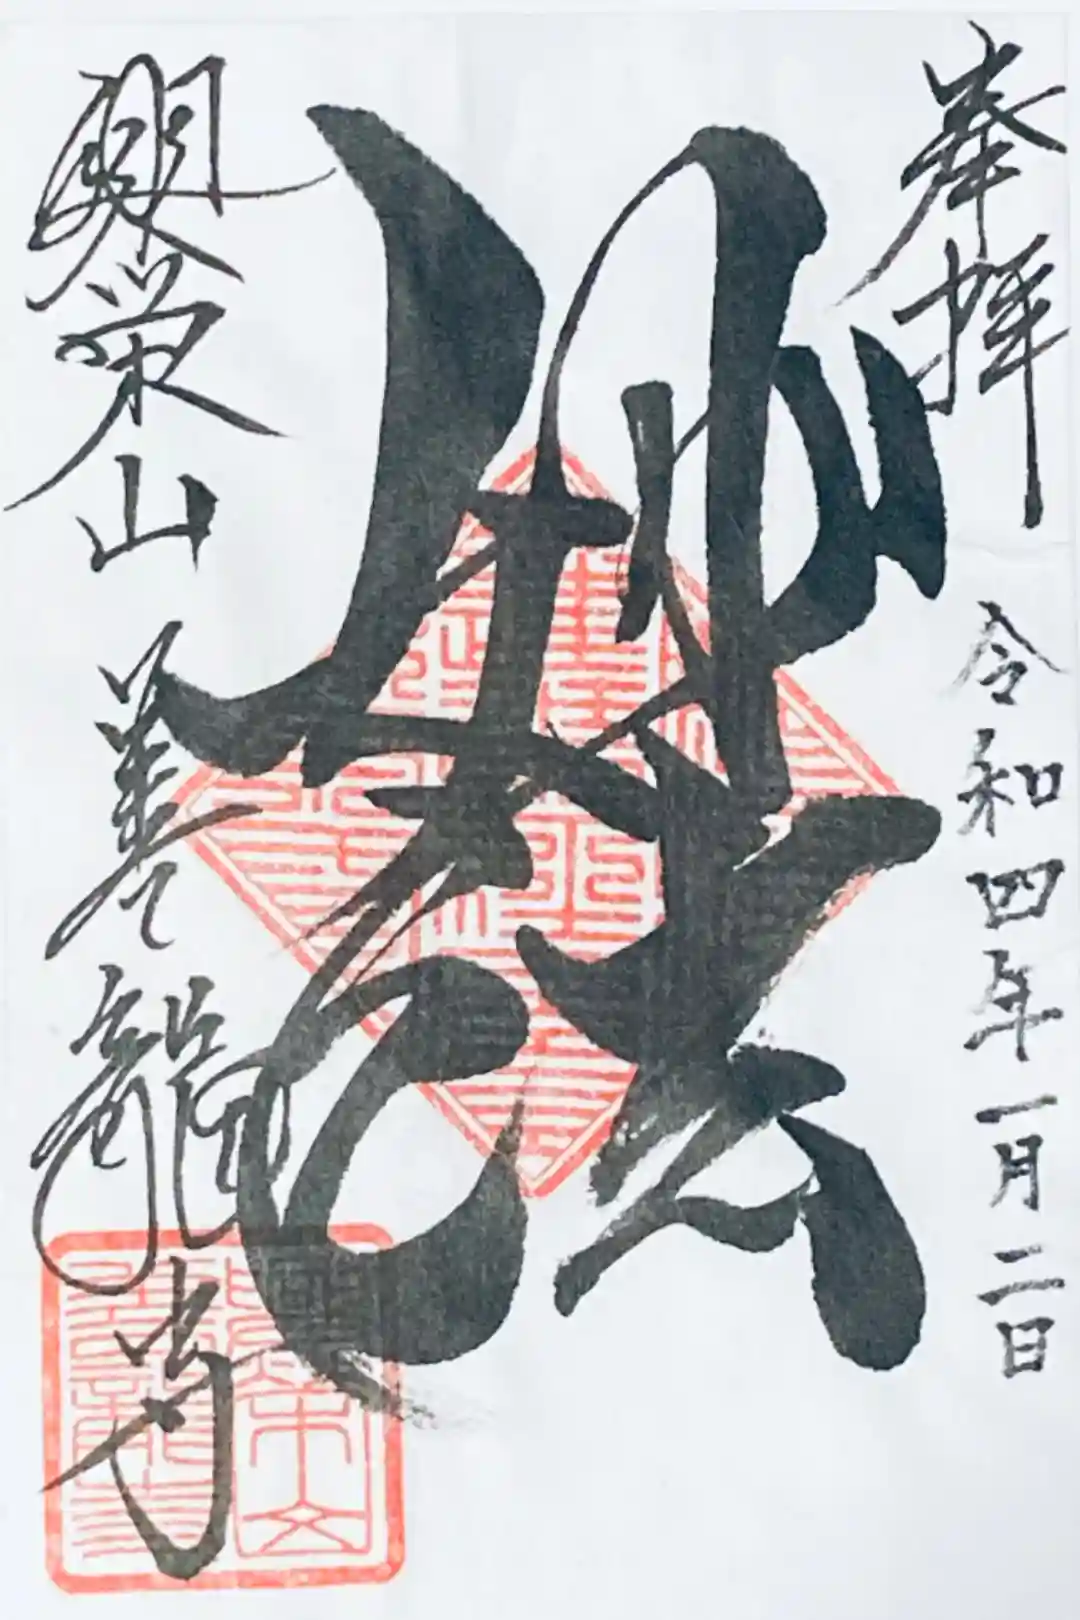 奉拝
令和四年一月二日
妙法
栄山 善龍寺